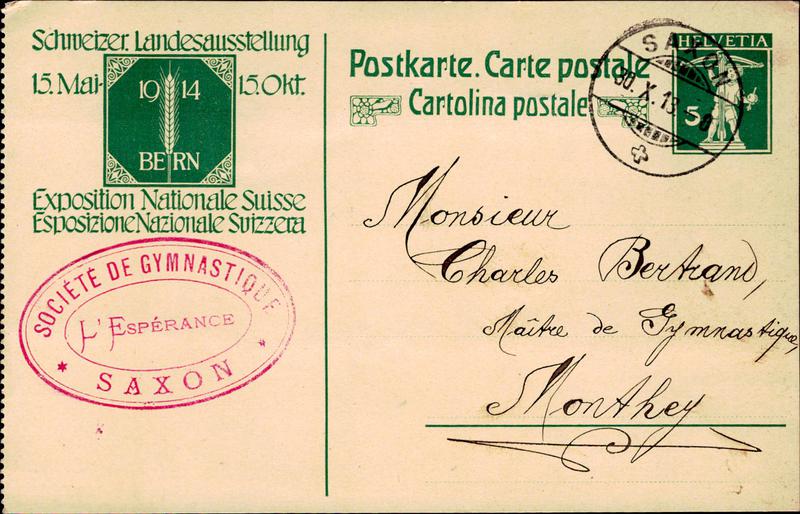 Schweizer. Landesausstellung
15. Mai- 15. Okt.
19 14
BERN
Exposition Nationale Suisse
Esposizione Nazionale Svizzera
SOCIÉTÉ DE GYMNASTIQUE
L'ESPÉRANCE
* SAXON *
Postkarte. Carte postale
Cartolina postale
SAXON
HELVETIA
5
Monsieur
Charles Bertrand,
Maître de Gymnastique,
Monthey